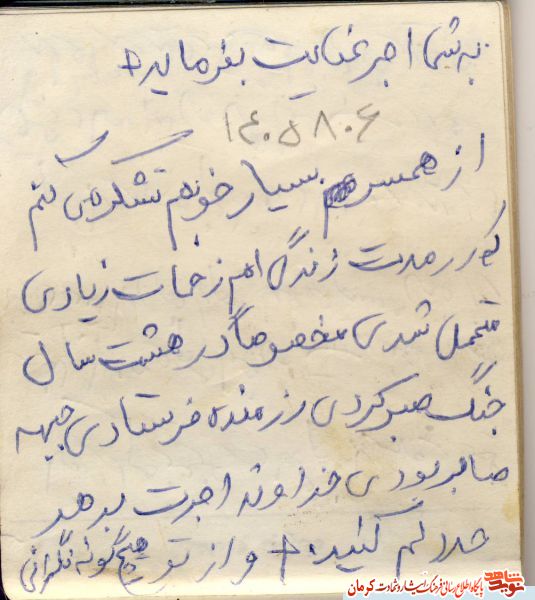 به شما اجر عنایت بفرماید
۱۴۰۵۸۰۶
از همسر بسیار خوبم تشکر می کنم
که در مدت زندگی ام زحمات زیادی
متحمل شدی مخصوصاً در هشت سال
جنگ صبر کردی رزمنده فرستادی جبهه
صابر بودی خداوند اجرت بدهد
حلالم کنید. و از تو هیچگونه نگرانی
نوید شاهد
پایگاه اطلاع رسانی فرهنگ ایثار و شهادت کرمان